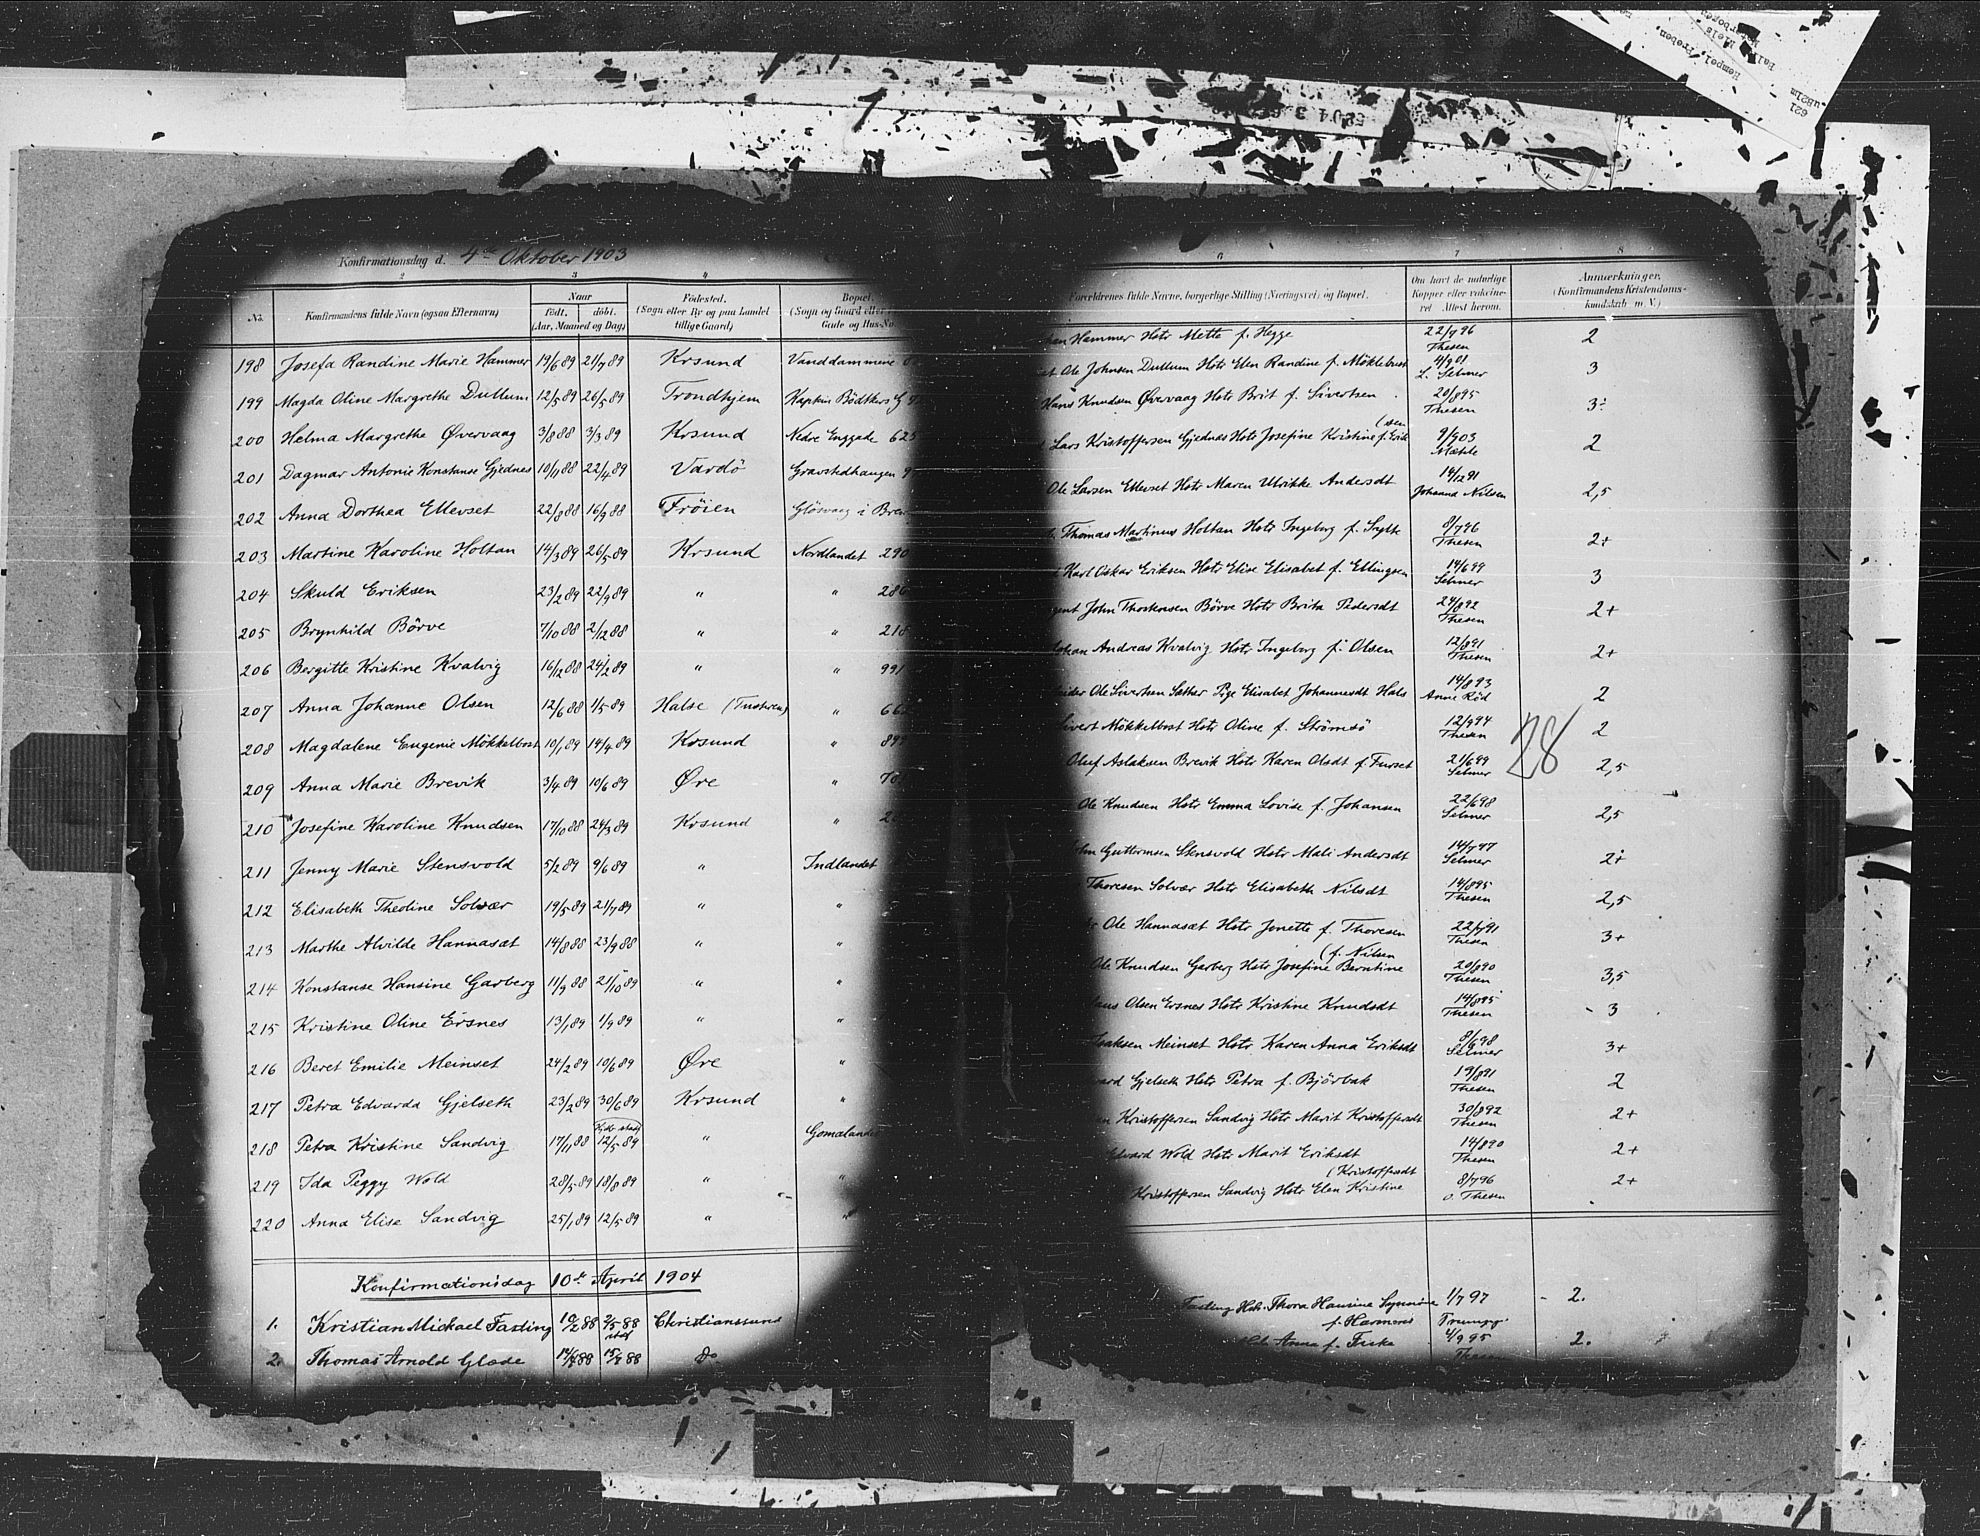 Konfirmationsdag d. 4de Oktober 1903
2 3 4
No. Konfirmandens fulde Navn (ogsaa Efternavn) Naar födt. döbt. (Aar, Maaned og Dag) Födested. (Sogn eller By og paa Landet tillige Gaard) Bopæl. (Sogn og Gaard eller Gade og Hus-No.
198 Josefa Randine Marie Hammer 19/6 89 21/7 89 Krsund Vanddammene
199 Magda Oline Margrethe Dullum 12/5 89 26/5 89 Trondhjem Kaptein Bödtkers G
200 Helma Margrethe Øvervaag 3/8 88 3/3 89 Krsund Nedre Enggade 625
201 Dagmar Antonie Konstanse Gjednes 10/11 88 22/4 89 Vardö Gravstedhaugen
202 Anna Dorthea Ellevset 22/8 88 16/9 88 Fröien Glösvaag i Brem
203 Martine Karoline Holtan 14/3 89 26/5 89 Krsund Nordlandet 290
204 Skuld Eriksen 23/2 89 22/9 89 " " 286
205 Brynhild Börve 7/10 88 2/12 88 " " 218
206 Bergitte Kristine Kvalvig 16/12 88 24/2 89 " " 991
207 Anna Johanne Olsen 12/6 88 1/5 89 Halse (Tustvren) " 66
208 Magdalene Eugenie Mökkelbost 10/1 89 14/4 89 Krsund " 899
209 Anna Marie Brevik 3/4 89 10/6 89 Øre " 70
210 Josefine Karoline Knudsen 17/10 88 24/3 89 Krsund " 2
211 Jenny Marie Stensvold 5/2 89 9/6 89 " Indlandet
212 Elisabeth Theoline Solvær 19/5 89 21/7 89 " "
213 Marthe Alvilde Hannasæt 14/8 88 23/9 88 " "
214 Konstanse Hansine Garberg 11/9 88 21/10 89 " "
215 Kristine Oline Ersnes 13/1 89 1/9 89 " "
216 Beret Emilie Meinset 24/2 89 10/6 89 Øre "
217 Petra Edvarda Gjelseth 23/2 89 30/6 89 Krsund "
218 Petra Kristine Sandvig 17/11 88 12/5 89 " Gomalandet
219 Ida Peggy Wold 28/5 89 18/8 89 " "
220 Anna Elise Sandvig 25/1 89 12/5 89 " "
Konfirmationsdag 10de April 1904
1. Kristian Mickael Fasting 10/2 88 2/5 88 Christianssund
2. Thomas Arnold Glæde 14/4 88 15/7 88 Do
6 7 8
Forældrenes fulde Navne, borgerlige Stilling (Næringsvei) og Bopæl. Om havt de naturlige Kopper eller vakcineret. Attest herom. Anmærkninger. (Konfirmandens Kristendomskundskab m. V.)
Hammer Hstr Mette f. Hegge 22/7 96 Thesen 2
Ole Johnsen Dullum Hstr Elen Randine f. Mökkelbost 4/9 01 L. Selmer 3
Hans Knudsen Øvervaag Hstr Brit f. Sivertsen 20/8 95 Thesen 3
Lars Kristoffersen Gjednes Hstr Josefine Kristine f. Erik(sen 9/9 03 Mæhle 2
Ole Larsen Ellevset Hstr Maren Ulrikke Andersdt 14/12 91 Johanna Nilsen 2,5
Thomas Martinus Holtan Hstr Ingeborg f. Sylte 8/7 96 Thesen 2+
Karl Oskar Eriksen Hstr Elise Elisabet f. Ellingsen 14/6 99 Selmer 3
John Thorkousen Börve Hstr Brita Pedersdt 24/8 92 Thesen 2+
Johan Andreas Kvalvig Hstr Ingeborg f. Olsen 12/8 91 Thesen 2+
Ole Sivertsen Sæther Pige Elisabet Johannesdt Hals 14/8 93 Anne Röd 2
Sivert Mökkelbost Hstr Oline f. Strömsö 12/9 94 Thesen 2
28
Oluf Aslaksen Brevik Hstr Karen Olsdt f. Furset 21/6 99 Selmer 2,5
Ole Knudsen Hstr Emma Lovise f. Johansen 22/6 98 Selmer 2,5
Guttormsen Stensvold Hstr Mali Andersdt 14/7 97 Selmer 2+
Thoresen Solvær Hstr Elisabeth Nilsdt 14/8 95 Thesen 2,5
Ole Hannasæt Hstr Jonette f. Thoresen 22/7 91 Thesen 3+
Ole Knudsen Garberg Hstr Josefine Berntine (f. Nilsen 20/8 90 Thesen 3,5
Olsen Ersnes Hstr Kristine Knudsdt 14/8 95 Thesen 3
Isaksen Meinset Hstr Karen Anna Eriksdt 8/6 98 Selmer 3+
Gjelseth Hstr Petra f. Björbak 19/8 91 Thesen 2
Kristoffersen Sandvig Hstr Marit Kristoffersdt 30/8 92 Thesen 2+
Edvard Wold Hstr Marit Eriksdt 14/8 90 Thesen 2+
Kristoffersen Sandvig Hstr Elen Kristine (Kristoffersdt 8/7 96 O. Thesen 2+
Fasting Hstr. Thora Hansine Synnöve f. Harmens 1/7 97 2.
Anna f. Fiske 4/9 95 Thesen 2.